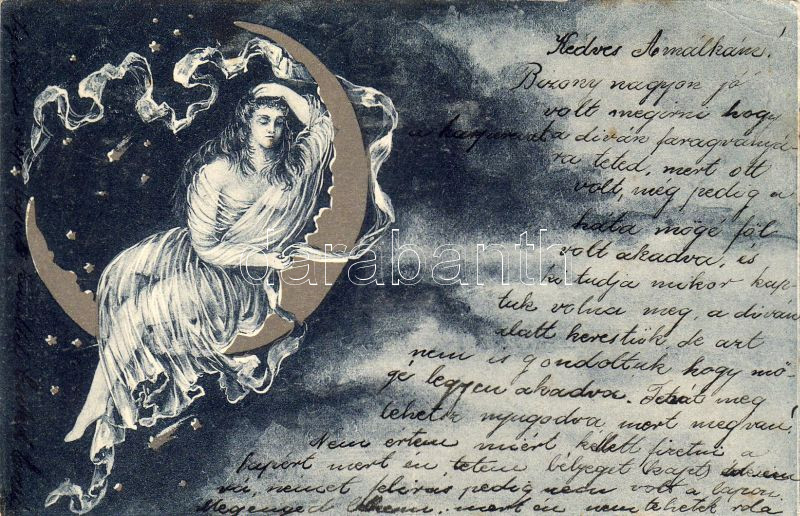 Kedves Amálkám!
Bizony nagyon jó
volt megirni hogy
a diván faragványá-
ra tetted, mert ott
volt, még pedig a
háta mögé föl
volt akadva, és
ki tudja mikor kap-
tuk volna meg, a diván
alatt kerestük, de azt
nem is gondoltuk hogy mö-
gé legyen akadva. Tehát meg
lehetsz nyugodva, mert megvan!
Nem értem miért kellett fizetni a
lapért mert én tettem bélyeget
rá, német felirás pedig nem volt a lapon.
mert én nem tehetek róla
darabanth